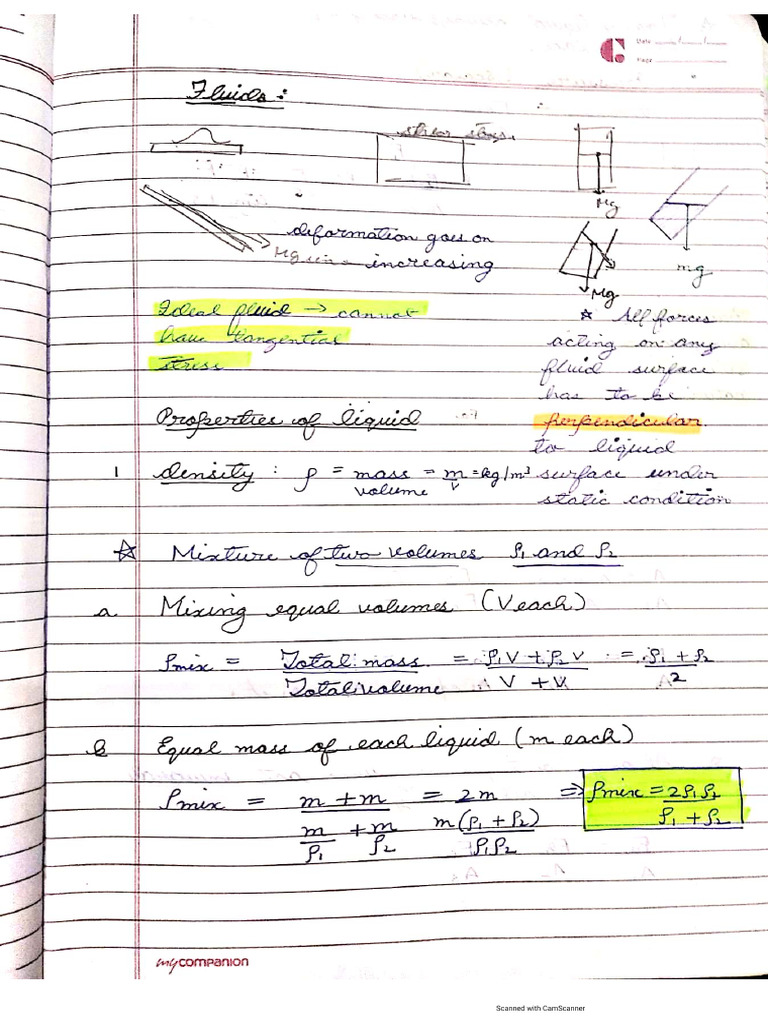 Date
Page
Fluids :
shear stress.
Mg
mg
deformation goes on
Mg sin
increasing
Mg
Ideal fluid → cannot
have tangential
stress
☆ All forces
acting on any
fluid surface
has to be
perpendicular
to liquid
surface under
static condition
Properties of liquid
1 density : ρ = mass/volume = m/v = kg/m³
☆ Mixture of two volumes ρ1 and ρ2
a Mixing equal volumes (V each)
ρmix = Total mass/Total volume = ρ1V + ρ2V/V + V = ρ1 + ρ2/2
b Equal mass of each liquid (m each)
ρmix = m + m = 2m ⇒ ρmix = 2ρ1ρ2
m/ρ1 + m/ρ2 m(ρ1 + ρ2)/ρ1ρ2 ρ1 + ρ2
my companion
Scanned with CamScanner